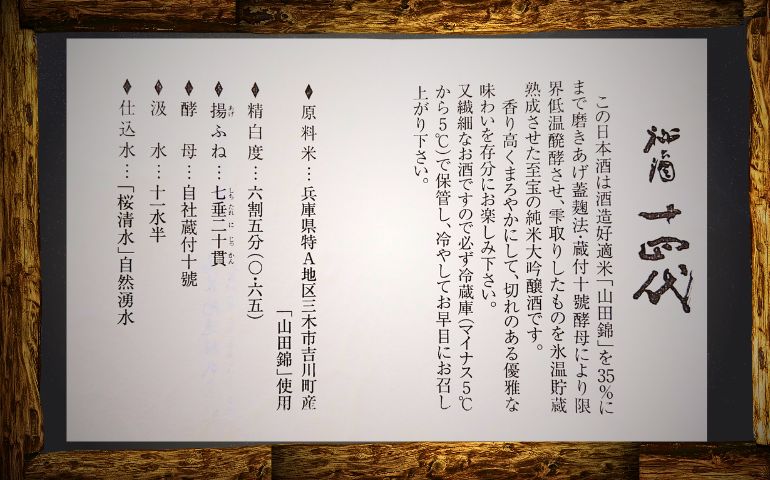 秘酒 十四代
この日本酒は酒造好適米「山田錦」を35%に
まで磨きあげ蓋麹法・蔵付十號酵母により限
界低温醗酵させ、雫取りしたものを氷温貯蔵
熟成させた至宝の純米大吟醸酒です。
香り高くまろやかにして、切れのある優雅な
味わいを存分にお楽しみ下さい。
又繊細なお酒ですので必ず冷蔵庫(マイナス5℃
から5℃)で保管し、冷やしてお早目にお召し
上がり下さい。
♦原料米…兵庫県特A地区三木市吉川町産
「山田錦」使用
♦精白度…六割五分(〇・六五)
♦揚ふね…七垂二十貫
あげ しちたれにじっかん
♦酵母…自社蔵付十號
♦汲水…十一水半
♦仕込水…「桜清水」自然湧水